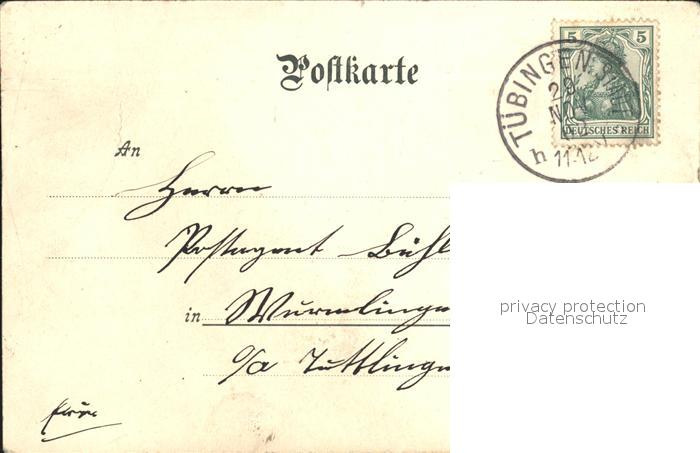 Postkarte
5 5
DEUTSCHES REICH
TÜBINGEN
29
N
h 11-12
An
Herrn
Postagent Bühl
in Wurmlinge
o/a Tuttlinge
privacy protection
Datenschutz